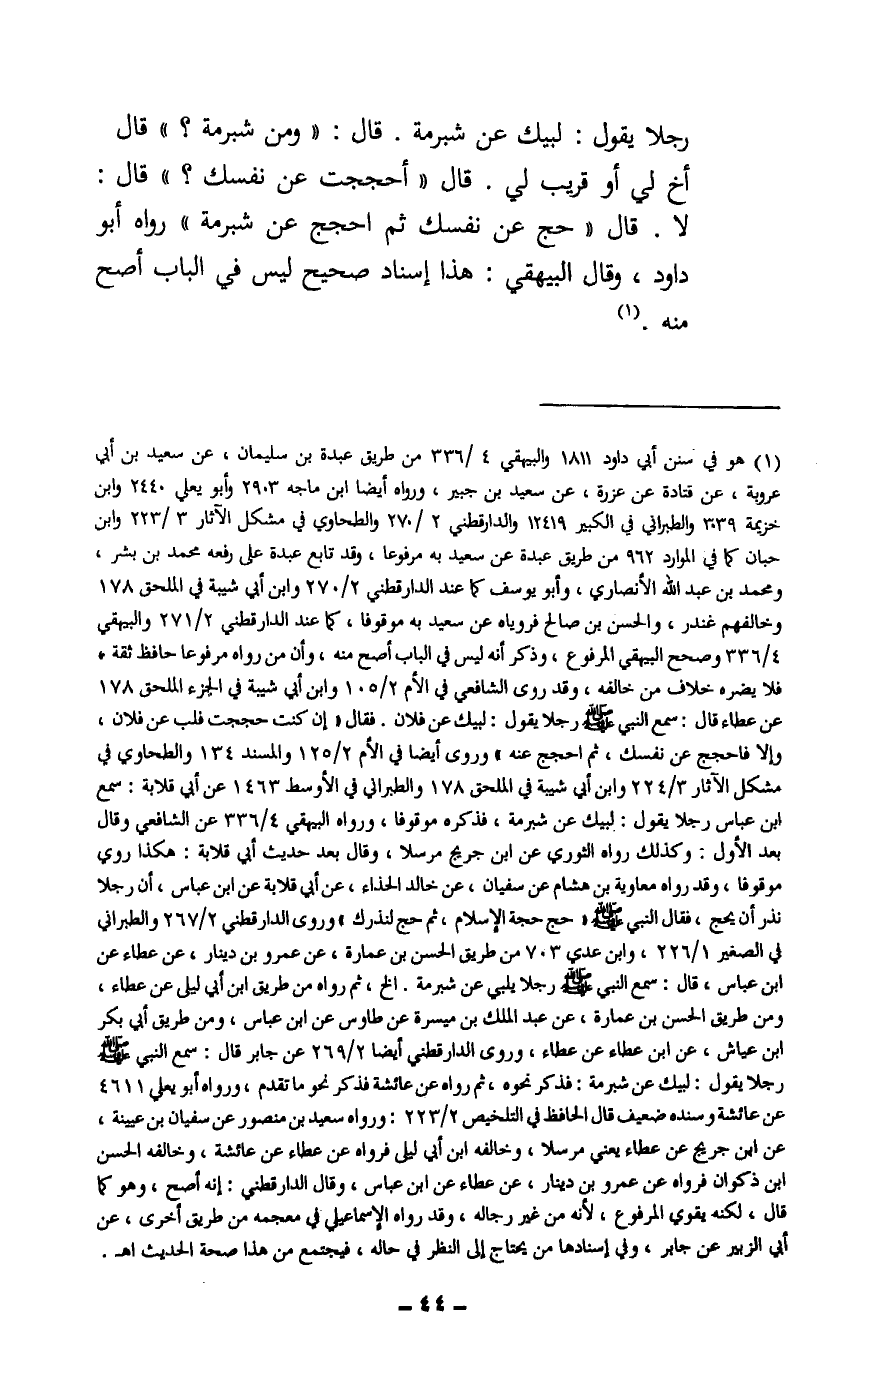 رجلا يقول : لبيك عن شبرمة . قال : « ومن شبرمة ؟ » قال
أخ لي أو قريب لي . قال « أحججت عن نفسك ؟ » قال :
لا . قال « حج عن نفسك ثم احجج عن شبرمة » رواه أبو
داود ، وقال البيهقي : هذا إسناد صحيح ليس في الباب أصح
منه .(١)
(١) هو في سنن أبي داود ١٨١١ والبيهقي ٤ /٣٣٦ من طريق عبدة بن سليمان ، عن سعيد بن أبي
عروبة ، عن قتادة عن عزرة ، عن سعيد بن جبير ، ورواه أيضا ابن ماجه ٢٩٠٣ وأبو يعلي ٢٤٤٠ وابن
خزيمة ٣٠٣٩ والطبراني في الكبير ١٢٤١٩ والدارقطني ٢ /٢٧٠ والطحاوي في مشكل الآثار ٣ /٢٢٣ وابن
حبان كما في الموارد ٩٦٢ من طريق عبدة عن سعيد به مرفوعا ، وقد تابع عبدة على رفعه محمد بن بشر ،
ومحمد بن عبد الله الأنصاري ، وأبو يوسف كما عند الدارقطني ٢٧٠/٢ وابن أبي شيبة في الملحق ١٧٨
وخالفهم غندر ، والحسن بن صالح فروياه عن سعيد به موقوفا ، كما عند الدارقطني ٢٧١/٢ والبيهقي
٣٣٦/٤ وصحح البيهقي المرفوع ، وذكر أنه ليس في الباب أصح منه ، وأن من رواه مرفوعا حافظ ثقة ،
فلا يضره خلاف من خالفه ، وقد روى الشافعي في الأم ١٠٥/٢ وابن أبي شيبة في الجزء الملحق ١٧٨
عن عطاء قال : سمع النبي ﷺ رجلا يقول : لبيك عن فلان . فقال « إن كنت حججت فلب عن فلان ،
وإلا فاحجج عن نفسك ، ثم احجج عنه » وروى أيضا في الأم ١٢٥/٢ والمسند ١٣٤ والطحاوي في
مشكل الآثار ٢٢٤/٣ وابن أبي شيبة في الملحق ١٧٨ والطبراني في الأوسط ١٤٦٣ عن أبي قلابة : سمع
ابن عباس رجلا يقول : لبيك عن شبرمة ، فذكره موقوفا ، ورواه البيهقي ٣٣٦/٤ عن الشافعي وقال
بعد الأول : وكذلك رواه الثوري عن ابن جريج مرسلا ، وقال بعد حديث أبي قلابة : هكذا روي
موقوفا ، وقد رواه معاوية بن هشام عن سفيان ، عن خالد الحذاء ، عن أبي قلابة عن ابن عباس ، أن رجلا
نذر أن يحج ، فقال النبي ﷺ « حج حجة الإسلام ، ثم حج لنذرك » وروى الدارقطني ٢٦٧/٢ والطبراني
في الصغير ٢٢٦/١ ، وابن عدي ٧٠٣ من طريق الحسن بن عمارة ، عن عمرو بن دينار ، عن عطاء عن
ابن عباس ، قال : سمع النبي ﷺ رجلا يلبي عن شبرمة . الخ ، ثم رواه من طريق ابن أبي ليلى عن عطاء ،
ومن طريق الحسن بن عمارة ، عن عبد الملك بن ميسرة عن طاوس عن ابن عباس ، ومن طريق أبي بكر
ابن عياش ، عن ابن عطاء عن عطاء ، وروى الدارقطني أيضا ٢٦٩/٢ عن جابر قال : سمع النبي ﷺ
رجلا يقول : لبيك عن شبرمة : فذكر نحوه ، ثم رواه عن عائشة فذكر نحو ما تقدم ، ورواه أبو يعلي ٤٦١١
عن عائشة وسنده ضعيف قال الحافظ في التلخيص ٢٢٣/٢ : ورواه سعيد بن منصور عن سفيان بن عيينة ،
عن ابن جريج عن عطاء يعني مرسلا ، وخالفه ابن أبي ليلى فرواه عن عطاء عن عائشة ، وخالفه الحسن
ابن ذكوان فرواه عن عمرو بن دينار ، عن عطاء عن ابن عباس ، وقال الدارقطني : إنه أصح ، وهو كما
قال ، لكنه يقوي المرفوع ، لأنه من غير رجاله ، وقد رواه الإسماعيلي في معجمه من طريق أخرى ، عن
أبي الزبير عن جابر ، وفي إسنادها من يحتاج إلى النظر في حاله ، فيجتمع من هذا صحة الحديث اهـ .
– ٤٤ –